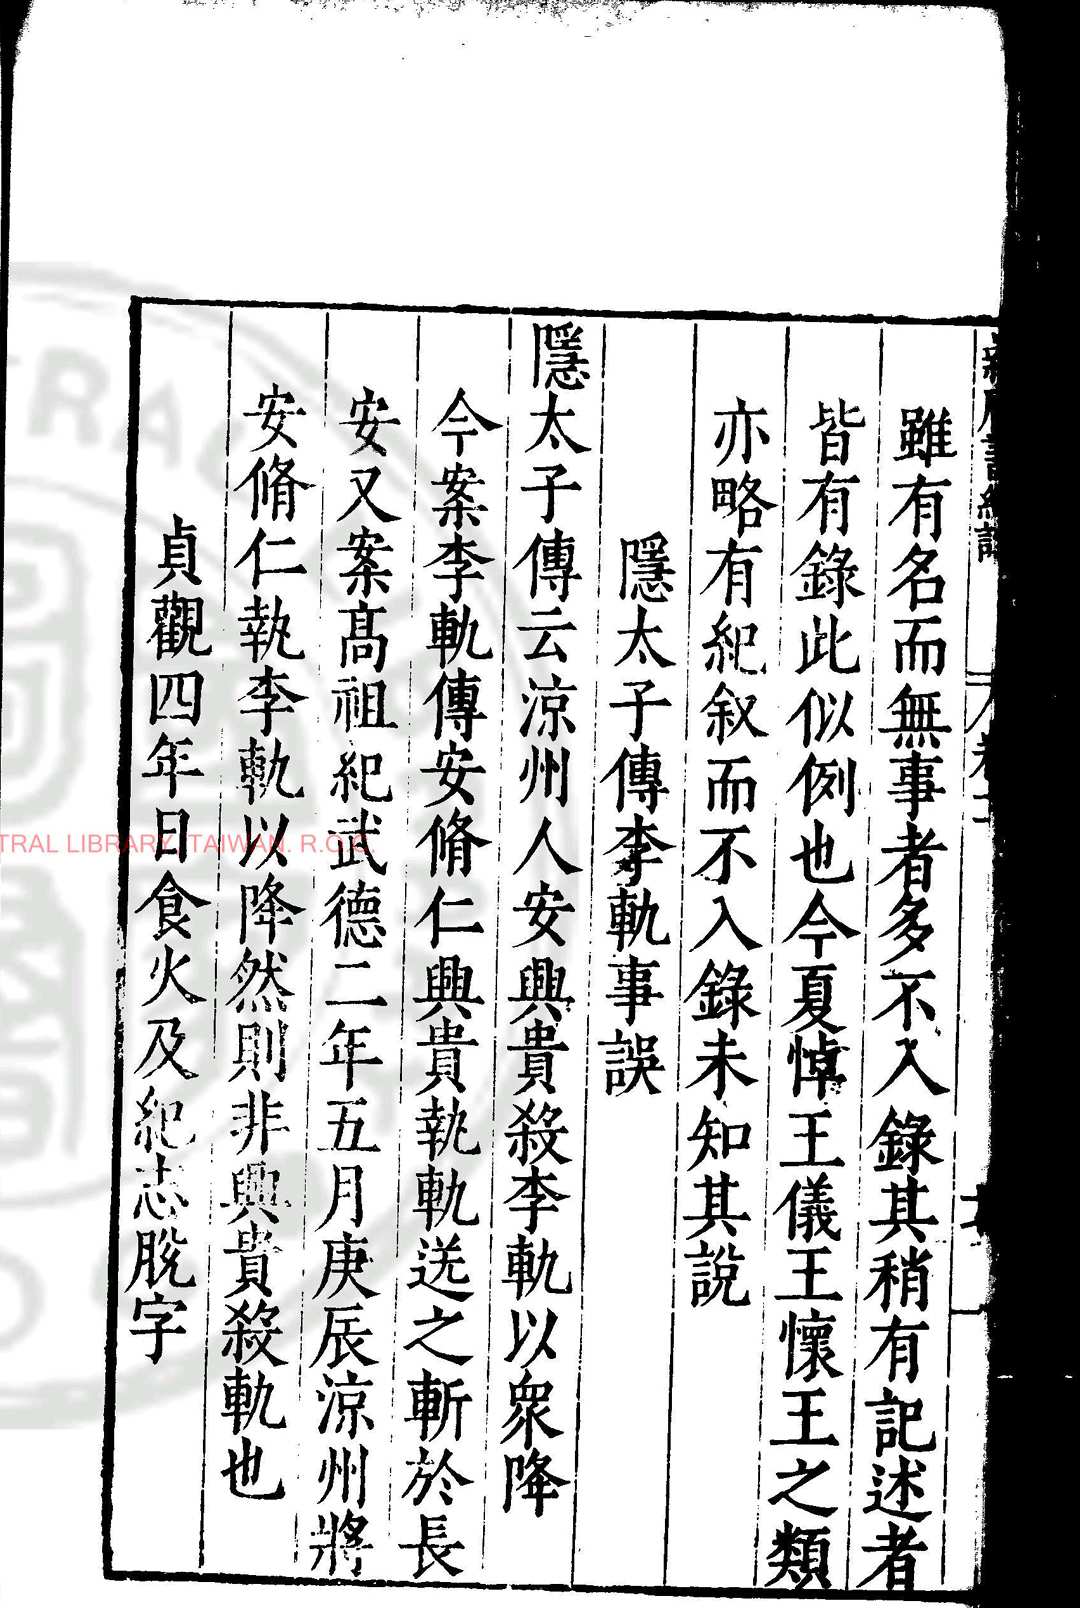 雖有名而無事者多不入錄其稍有記述者
皆有錄此似例也今夏悼王儀王懷王之類
亦略有紀叙而不入錄未知其說
隱太子傳李軌事誤
隱太子傳云涼州人安興貴殺李軌以衆降
今案李軌傳安脩仁興貴執軌送之斬於長
安又案髙祖紀武德二年五月庚辰涼州將
安脩仁執李軌以降然則非興貴殺軌也
貞觀四年日食火及紀志脫字
TRAL LIBRARY, TAIWAN. R.O.C.